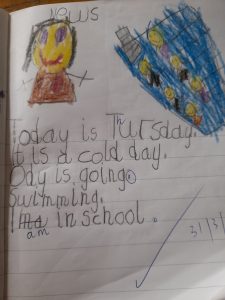 News
Today is Thursday.
It is a cold day.
Ody is going.
Swimming.
I am in school.
31/3/